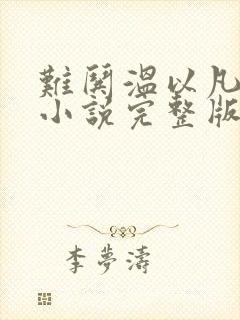 難鬨溫以凡
小說完整版
李夢濤